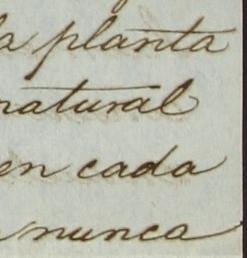 la planta
natural
en cada
nunca